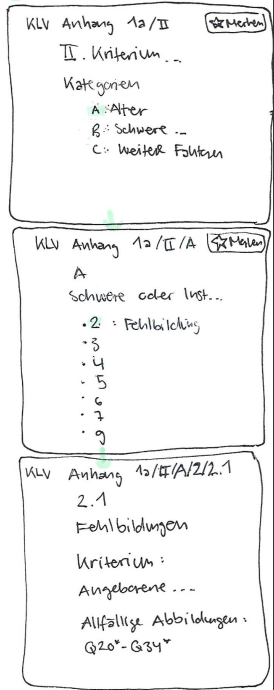 KLV Anhang 1a/II ☆Merken
II. Kriterium...
Kategorien
A: Alter
B: Schwere ...
C: Weitere Faktoren
KLV Anhang 1a/II/A ☆Merken
A
Schwere oder Inst...
• 2 : Fehlbildung
• 3
• 4
• 5
• 6
• 7
• 9
KLV Anhang 1a/II/A/2/2.1
2.1
Fehlbildungen
Kriterium:
Angeborene ...
Allfällige Abbildungen:
Q20*-Q34*